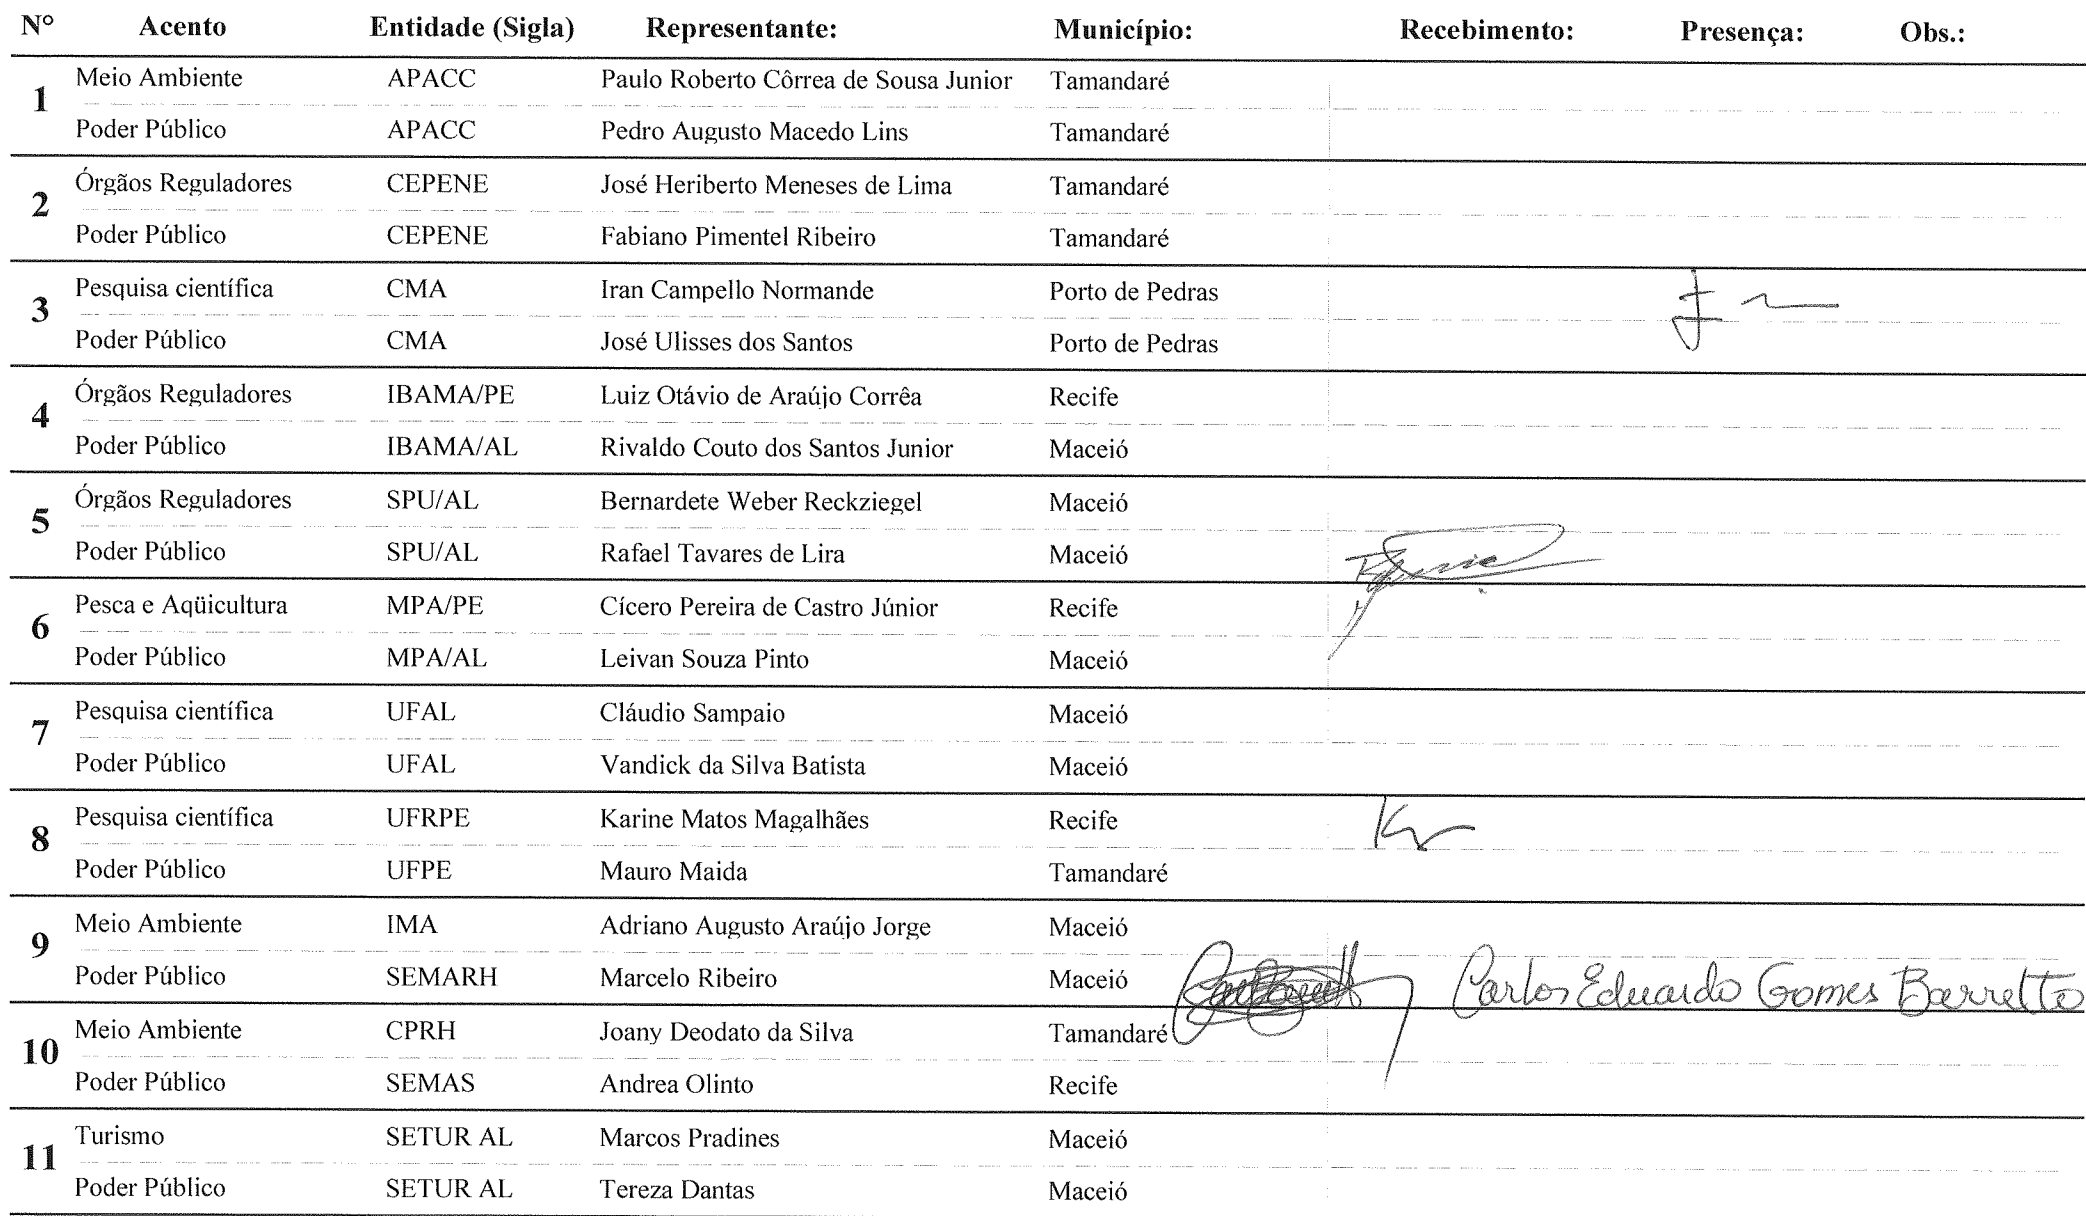 N° Acento Entidade (Sigla) Representante: Município: Recebimento: Presença: Obs.:
1
Meio Ambiente APACC Paulo Roberto Côrrea de Sousa Junior Tamandaré
Poder Público APACC Pedro Augusto Macedo Lins Tamandaré
2
Órgãos Reguladores CEPENE José Heriberto Meneses de Lima Tamandaré
Poder Público CEPENE Fabiano Pimentel Ribeiro Tamandaré
3
Pesquisa científica CMA Iran Campello Normande Porto de Pedras
Poder Público CMA José Ulisses dos Santos Porto de Pedras
4
Órgãos Reguladores IBAMA/PE Luiz Otávio de Araújo Corrêa Recife
Poder Público IBAMA/AL Rivaldo Couto dos Santos Junior Maceió
5
Órgãos Reguladores SPU/AL Bernardete Weber Reckziegel Maceió
Poder Público SPU/AL Rafael Tavares de Lira Maceió
6
Pesca e Aqüicultura MPA/PE Cícero Pereira de Castro Júnior Recife
Poder Público MPA/AL Leivan Souza Pinto Maceió
7
Pesquisa científica UFAL Cláudio Sampaio Maceió
Poder Público UFAL Vandick da Silva Batista Maceió
8
Pesquisa científica UFRPE Karine Matos Magalhães Recife
Poder Público UFPE Mauro Maida Tamandaré
9
Meio Ambiente IMA Adriano Augusto Araújo Jorge Maceió
Poder Público SEMARH Marcelo Ribeiro Maceió Carlos Eduardo Gomes Barretto
10
Meio Ambiente CPRH Joany Deodato da Silva Tamandaré
Poder Público SEMAS Andrea Olinto Recife
11
Turismo SETUR AL Marcos Pradines Maceió
Poder Público SETUR AL Tereza Dantas Maceió